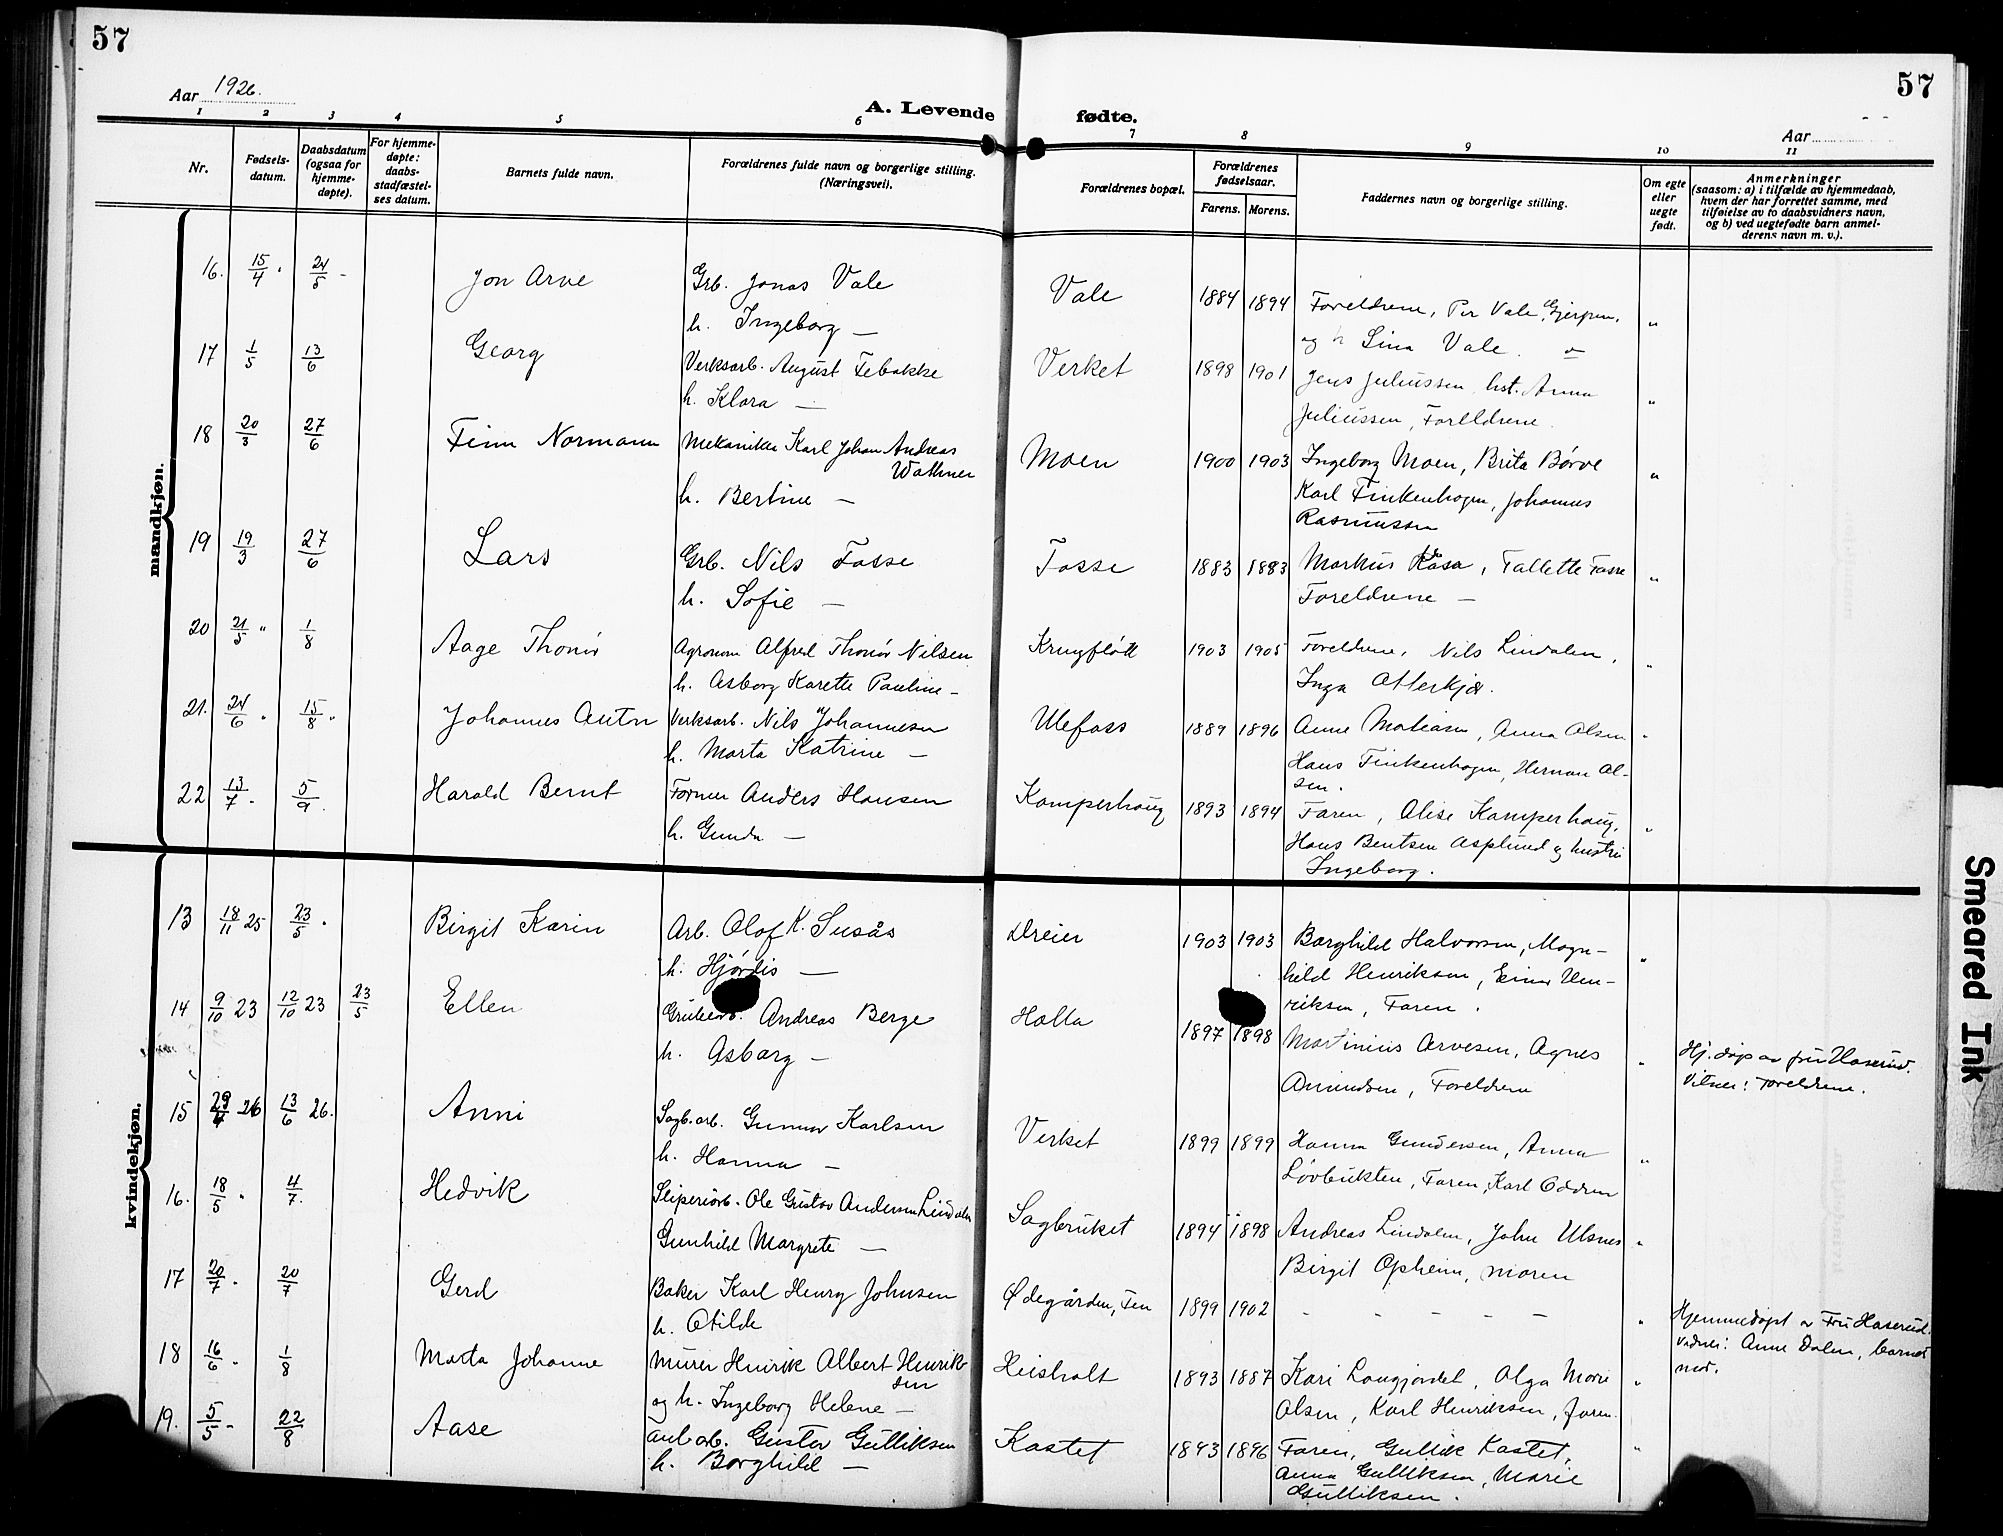 57
57
Aar 1926.
A. Levende fødte.
Aar
1 2 3 4 5 6 7 8 9 10 11
Nr.
Fødsels-
datum.
Daabsdatum
(ogsaa for
hjemme-
døpte).
For hjemme-
døpte:
daabs-
stadfæstel-
ses datum.
Barnets fulde navn.
Forældrenes fulde navn og borgerlige stilling.
(Næringsvei).
Forældrenes bopæl.
Forældrenes
fødselsaar.
Farens. Morens.
Faddernes navn og borgerlige stilling.
Om egte
eller
uegte
født.
Anmerkninger
(saasom: a) i tilfælde av hjemmedaab,
hvem der har forrettet samme, med
tilføielse av to daabsvidners navn,
og b) ved uegtefødte barn anmel-
derens navn m. v.).
mandkjøn.
16. 15/4 24/5 Jon Arve Grb. Jonas Vale Vale 1884 1894 Foreldrene, Per Vale, Gjerpen, "
h. Ingeborg — og Lina Vale
17 1/5 13/6 Georg Verksarb. August Febakke Verket 1898 1901 Jens Juliussen, hst. Anna "
h. Klara — Juliussen, Foreldrene.
18 20/3 27/6 Finn Normann Mekaniker Karl Johan Andreas Moen 1900 1903 Ingeborg Moen, Brita Børve "
Wathner Karl Finkenhagen, Johannes
h. Bertine — Rasmussen
19 19/3 27/6 Lars Grb. Nils Fosse Fosse 1883 1883 Markus Kåsa, Tallette Fosse "
h. Sofie — Foreldrene —
20 21/5 " 1/8 Aage Thonór Agronom Alfred Thonór Nilsen 1903 1905 Foreldrene, Nils Lindalen, "
h. Asborg Karette Pauline — Inga Atterkjær.
21. 24/6 15/8 Johannes Anton Verksarb. Nils Johannesen Ulefoss 1889 1896 Anne , Anna Olsen "
h. Marta Katrine — Hans Finkenhagen, Herman Ol-
sen.
22 13/7 5/9 Harald Bernt Former Anders Hansen Kamperhaug 1893 1894 Faren, Alise Kamperhaug, "
h. Gunda — Hans Bentsen Asplund og hustru
Ingeborg.
kvindekjøn.
13 18/11 25 23/5 Birgit Karin Arb. Olof K. Susås Dreier 1903 1903 Borghild Halvorsen, Magn- "
h. Hjørdis — hild Henriksen, Einar Hen-
riksen, Faren.
14 9/10 23 12/10 23 23/5 Ellen Andreas Berge Holla 1897 1898 Martinius Arvesen, Agnes " Hj. døp av fru Haserud.
h. Asbarg — Amundsen, Foreldrene Vitner: Foreldrene.
15 29/4 26 13/6 26. Anni Sagb.arb. Gunnar Karlsen Verket 1899 1899 Hanna Gundersen, Anna "
h. Hanna — Løvbukten, Faren, Karl Oddren
16. 18/5 4/7 Hedvik Sliperiarb. Ole Gustav Andersen Lindalen Sagbruket 1894 1898 Andreas Lindalen, John Ulsnes "
Gunhild Margrete — Birgit Opheim, Moren
17 20/7 20/7 Gerd Baker Karl Henry Johnsen Ødegården, Fen 1899 1902 – – – – – " Hjemmedøpt av Fru Haserud.
h. Otilde Vidner: Anne Dalen, barnets
mor.
18 16/6 1/8 Marta Johanne Murer Henrik Albert Henrik- Heisholt 1893 1887 Kari Langjordet, Olga Marie "
sen
og h. Ingeborg Helene — Olsen, Karl Henriksen, faren.
19. 5/5 22/8 Aase arb. Gustav Gulliksen Kastet 1893 1896 Faren, Gullik Kastet, "
h. Borghild — Anna Gulliksen, Marie
Gulliksen.
Smeared Ink